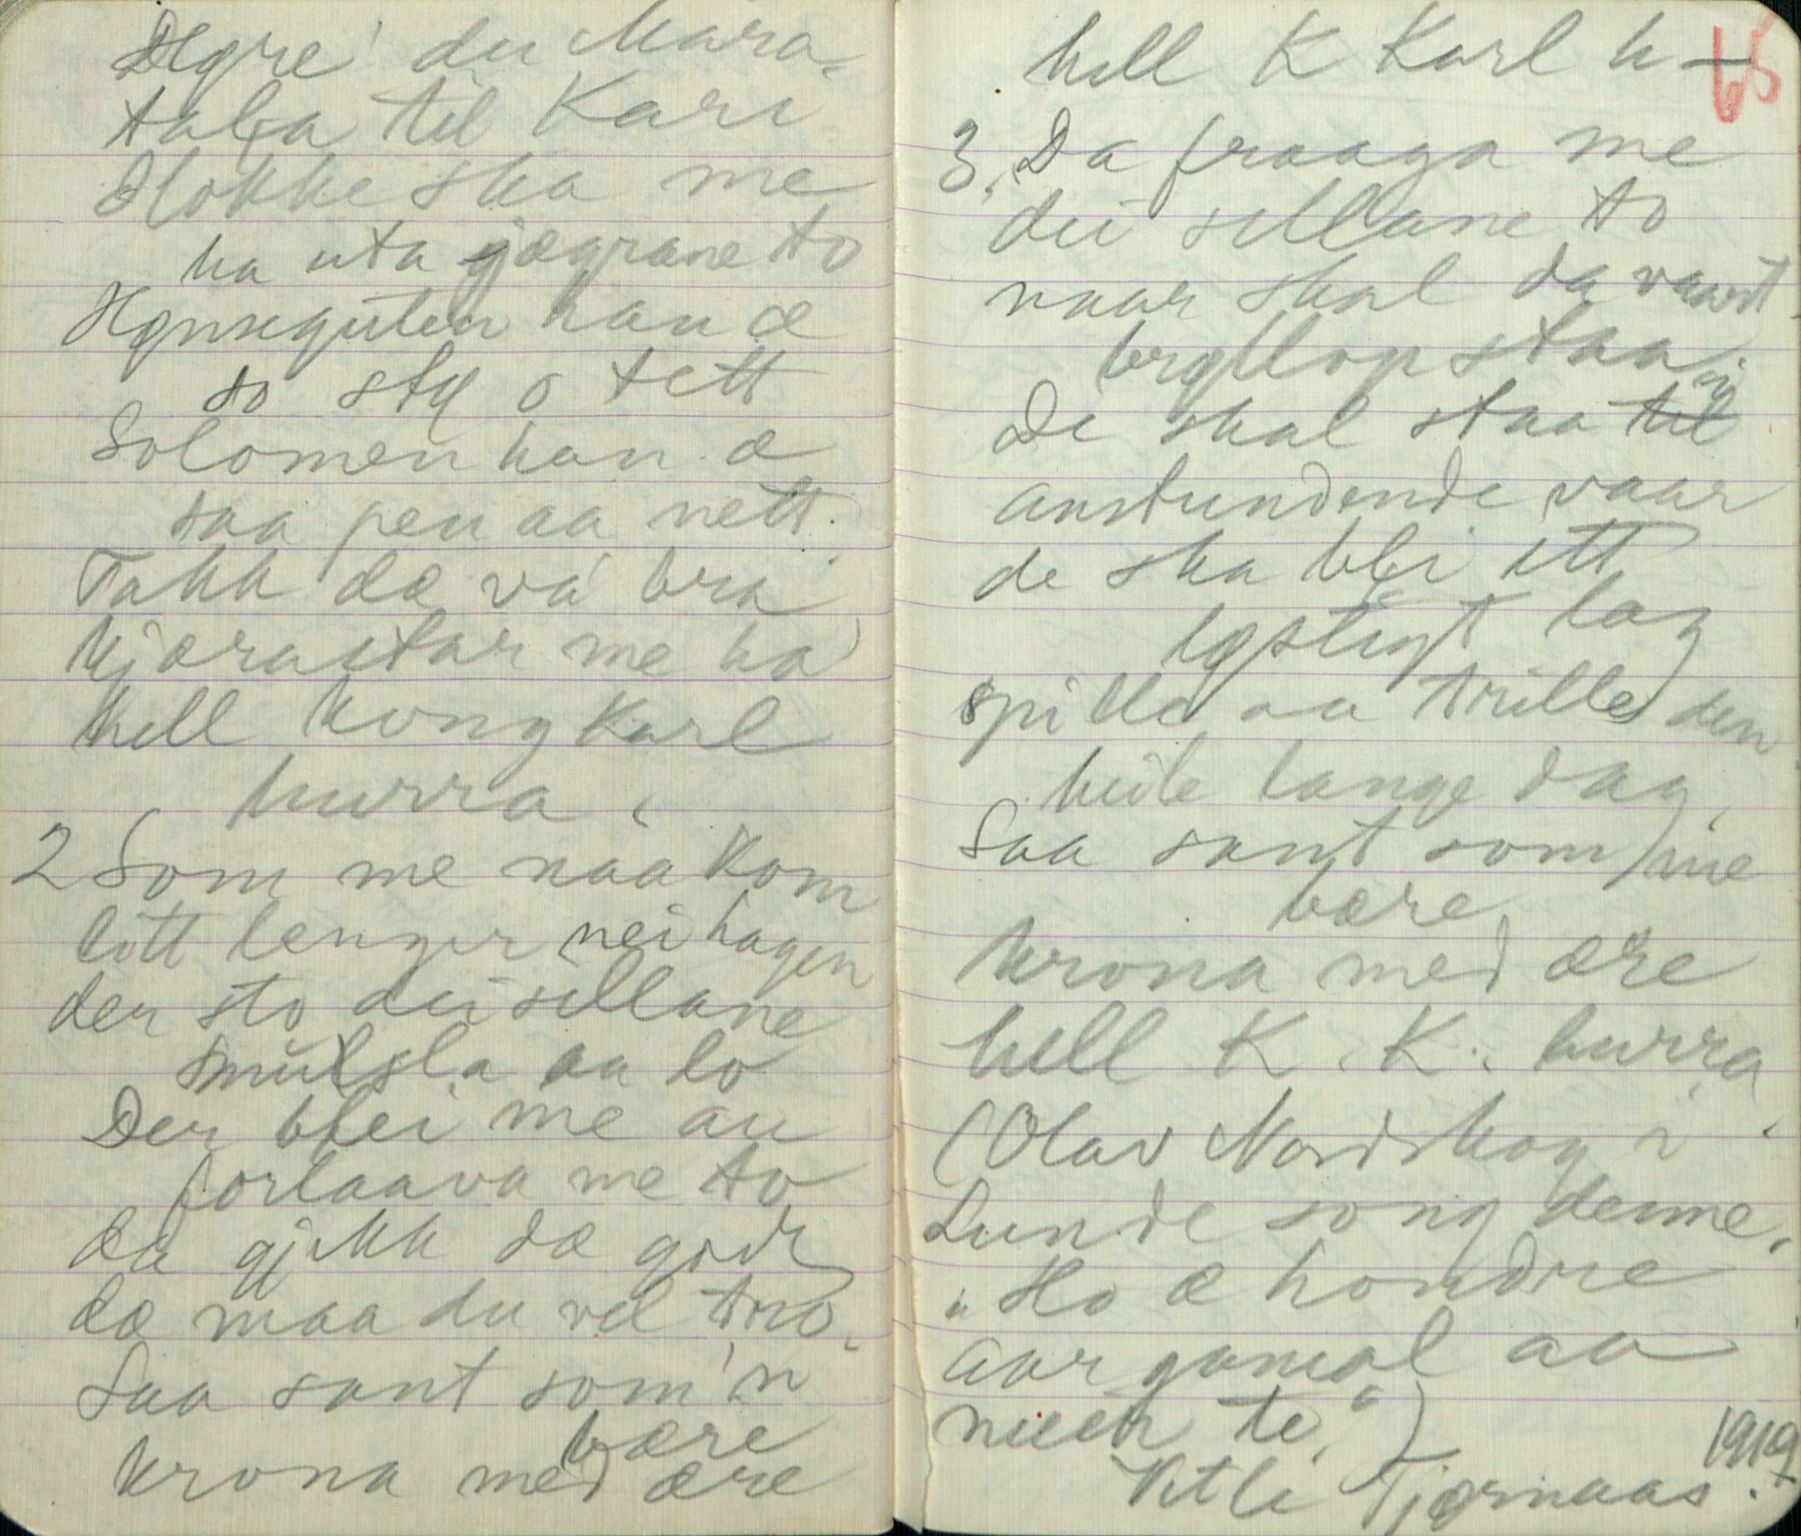 Høre du Mara
taka til Kari
Hokke ska me
ha uta gjøgrane to
Hønseguten han æ
so sty o tett
Solomen han æ
saa pen aa nett.
Takk dæ va bra
kjærastar me ha
hell kong Karl
hurra.
2 Som me naa kom
litt lenger nei hagen
der sto dei sillane
smulsla aa lo
Der blei me au
forlaava me to
dæ gjekk dæ godt
dæ maa du vel tro.
Saa sant som 'n
bære
krona med ære
hell K Karl h—
65
3. Da fraaga me
dei sillane to
naar skal da vaart
brøllop staa
De skal staa i
anstundende vaar
de ska bli ett
løstigt lag
spille aa trille den
heile lange dag,
Saa sant som me
bære
krona med ære
hell K. K. hurra.
(Olav Nordskog i
Lunde song denne.
"Ho æ hondre
aar gamal aa
meer te.")
1919
Ketli Tjørnaas.